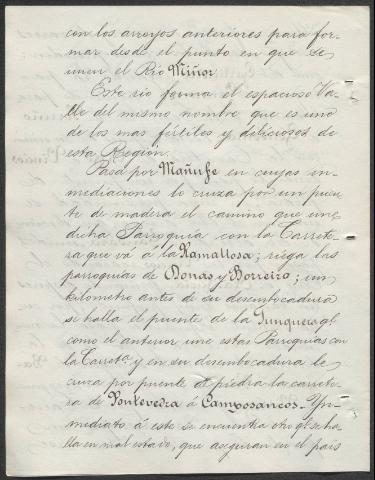 con los arroyos anteriores para for-
mar desde el punto en que se
unen el Rio Miñor
Este rio forma el espacioso Va-
lle del mismo nombre que es uno
de los mas fértiles y deliciosos de
esta Región.
Pasa por Mañufe en cuyas in-
mediaciones lo cruza por un puen-
te de madera el camino que une
dicha Parroquia con la Carrete-
ra que vá á la Ramallosa; riega las
parroquias de Donas y Borreiro; un
kilómetro antes de su desembocadura
se halla el puente de la Junquera q!
como el anterior une estas Parroquias con
la Carreta. y en su desembocadura le
cruza por puente de piedra la carrete-
ra de Pontevedra á Camposancos. Yn-
mediato á este se encuentra otro q! se ha-
lla en mal estado, que aseguran en el pais